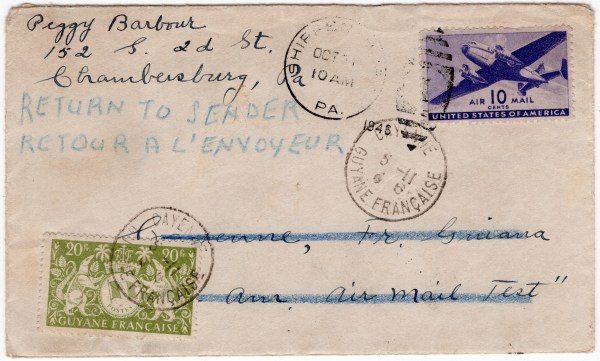 Peggy Barbour
152 S. 2d St.
Chambersburg, Pa
RETURN TO SENDER
RETOUR A L'ENVOYEUR
OCT
10 AM
PA.
1946
AIR 10 MAIL
CENTS
UNITED STATES OF AMERICA
GUYANE FRANÇAISE
Cayenne, Fr. Guiana
"Am. Air Mail Test"
CAYENNE
FRANÇAISE
20F 20F
POSTES
GUYANE FRANÇAISE